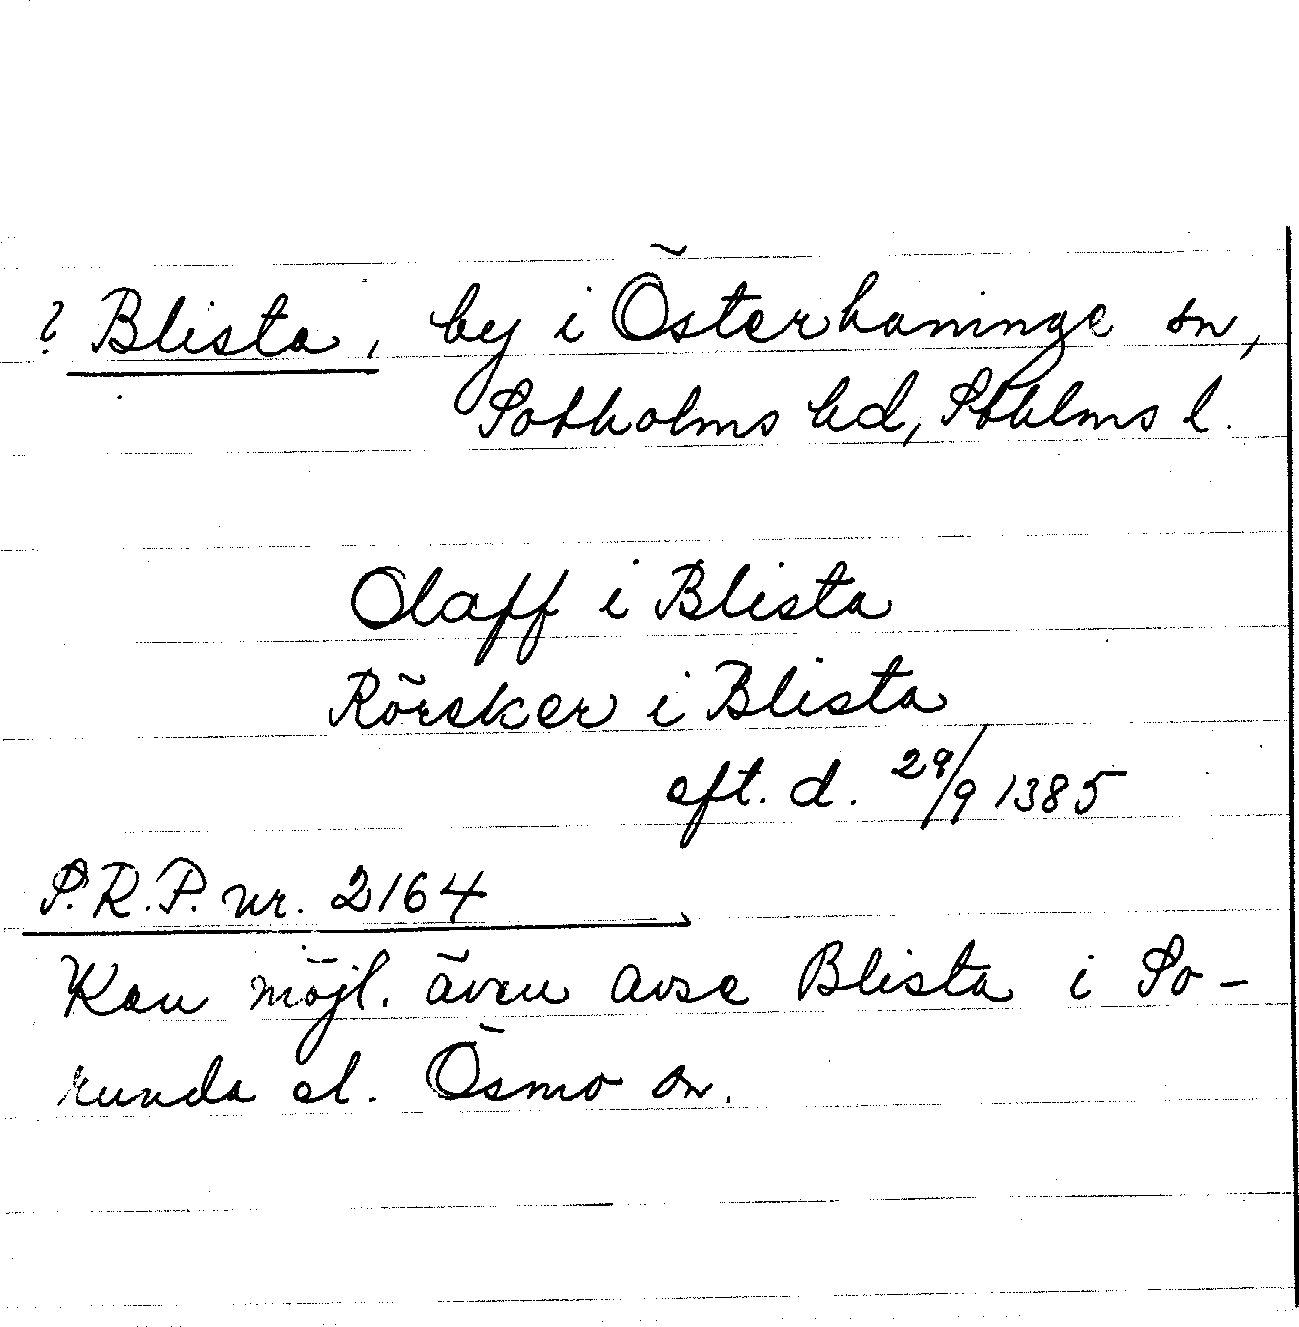 ? Blista, by i Österhaninge sn,
Sotholms hd, Sthlms l.
Olaff i Blista
Rörsker i Blista
eft. d. 29/9 1385
S.R.P. nr. 2164
Kan möjl. även avse Blista i So-
runda el. Ösmo sn.